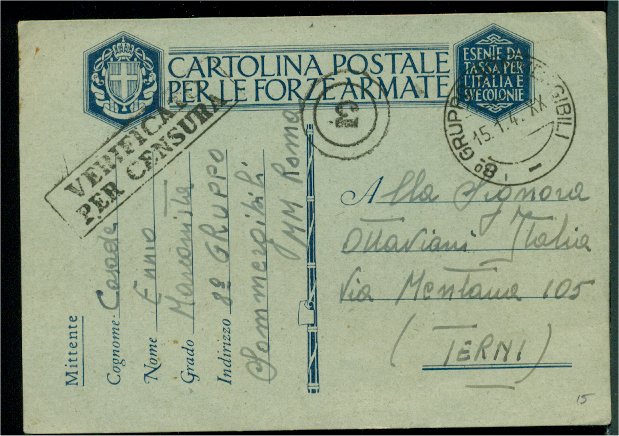 CARTOLINA POSTALE
PER LE FORZE ARMATE
ESENTE DA
TASSA PER
L'ITALIA E
SVE COLONIE
VERIFICATA
PER CENSURA
3
8º GRUPPO
15.1.4 XX
Mittente
Cognome Casade
Nome Ennio
Grado Marconista
Indirizzo 8º GRUPPO
Sommergibili
MM Roma
Alla Signora
Ottaviani Italia
Via Mentana 105
(TERNI)
15